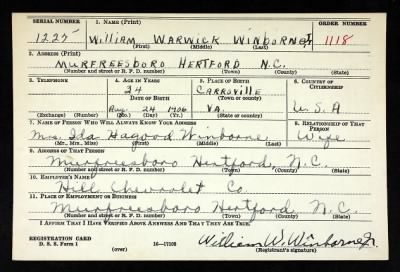 SERIAL NUMBER 1. NAME (Print) ORDER NUMBER
1225 William Warwick Winborne, Jr 1118
(First) (Middle) (Last)
2. ADDRESS (Print)
Murfreesboro Hertford N.C.
(Number and street or R. F. D. number) (Town) (County) (State)
3. TELEPHONE 4. AGE IN YEARS 5. PLACE OF BIRTH 6. COUNTRY OF CITIZENSHIP
34 Carrsville
DATE OF BIRTH (Town or county)
Aug. 24 1906 VA. U.S.A
(Exchange) (Number) (Mo.) (Day) (Yr.) (State or country)
7. NAME OF PERSON WHO WILL ALWAYS KNOW YOUR ADDRESS 8. RELATIONSHIP OF THAT PERSON
Mrs. Ida Winborne Wife
(Mr., Mrs., Miss) (First) (Middle) (Last)
9. ADDRESS OF THAT PERSON
Murfreesboro Hertford, N.C.
(Number and street or R. F. D. number) (Town) (County) (State)
10. EMPLOYER'S NAME
Hill Chevrolet Co.
11. PLACE OF EMPLOYMENT OR BUSINESS
Murfreesboro Hertford N.C.
(Number and street or R. F. D. number) (Town) (County) (State)
I AFFIRM THAT I HAVE VERIFIED ABOVE ANSWERS AND THAT THEY ARE TRUE.
REGISTRATION CARD
D. S. S. Form 1 (over) 16—17105 William W. Winborne Jr.
(Registrant's signature)